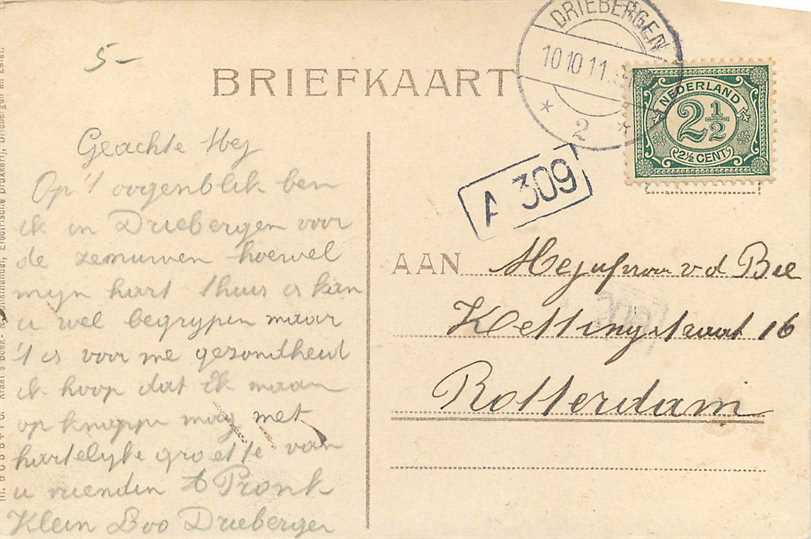 5-
BRIEFKAART
DRIEBERGEN
10 10 11
2
NEDERLAND
2½
2½ CENT
A 309
Geachte Mej
Op 't oogenblik ben
ik in Driebergen voor
de zenuwen hoewel
mijn hart thuis is kan
u wel begrijpen maar
't is voor me gezondheid
ik hoop dat ik maar
op knappe mag met
hartelijke groette van
u vrienden Pronk
Klein Loo Driebergen
AAN Mejufvrou v. d. Bee
Kettingstraat 16
Rotterdam